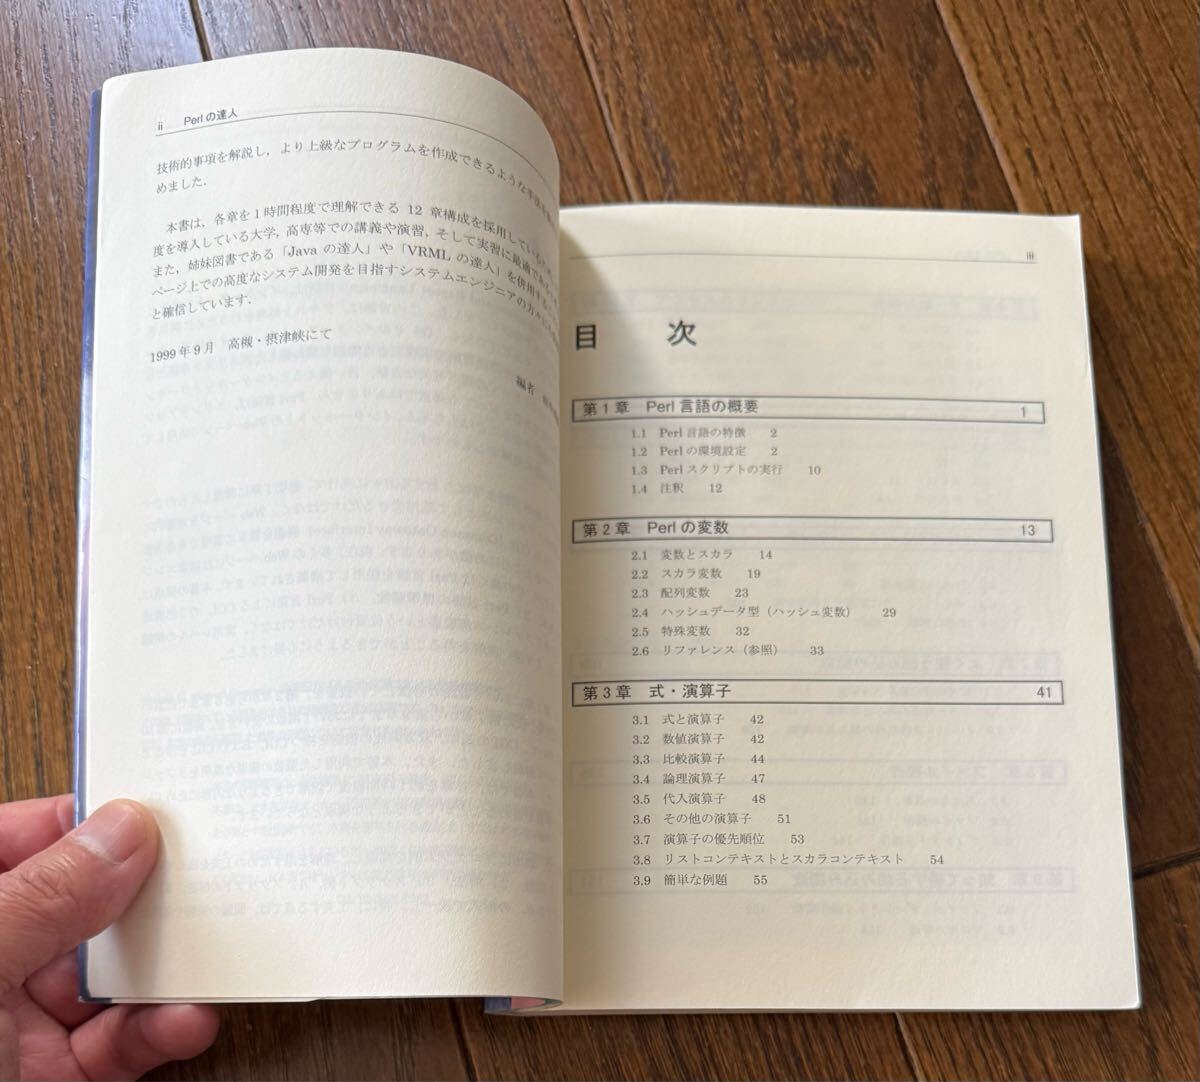 ii Perl の達人
技術的事項を解説し，より上級なプログラムを作成できるような手法を
めました．
本書は，各章を 1 時間程度で理解できる 12 章構成を採用している
度を導入している大学，高専等での講義や演習，そして実習に最適である
また，姉妹図書である「Java の達人」や「VRML の達人」を併用する
ページ上での高度なシステム開発を目指すシステムエンジニアの方々に
と確信しています．
1999 年 9 月 高槻・摂津峡にて
編者
iii
目 次
第 1 章 Perl 言語の概要 1
1.1 Perl 言語の特徴 2
1.2 Perl の環境設定 2
1.3 Perl スクリプトの実行 10
1.4 注釈 12
第 2 章 Perl の変数 13
2.1 変数とスカラ 14
2.2 スカラ変数 19
2.3 配列変数 23
2.4 ハッシュデータ型（ハッシュ変数） 29
2.5 特殊変数 32
2.6 リファレンス（参照） 33
第 3 章 式・演算子 41
3.1 式と演算子 42
3.2 数値演算子 42
3.3 比較演算子 44
3.4 論理演算子 47
3.5 代入演算子 48
3.6 その他の演算子 51
3.7 演算子の優先順位 53
3.8 リストコンテキストとスカラコンテキスト 54
3.9 簡単な例題 55